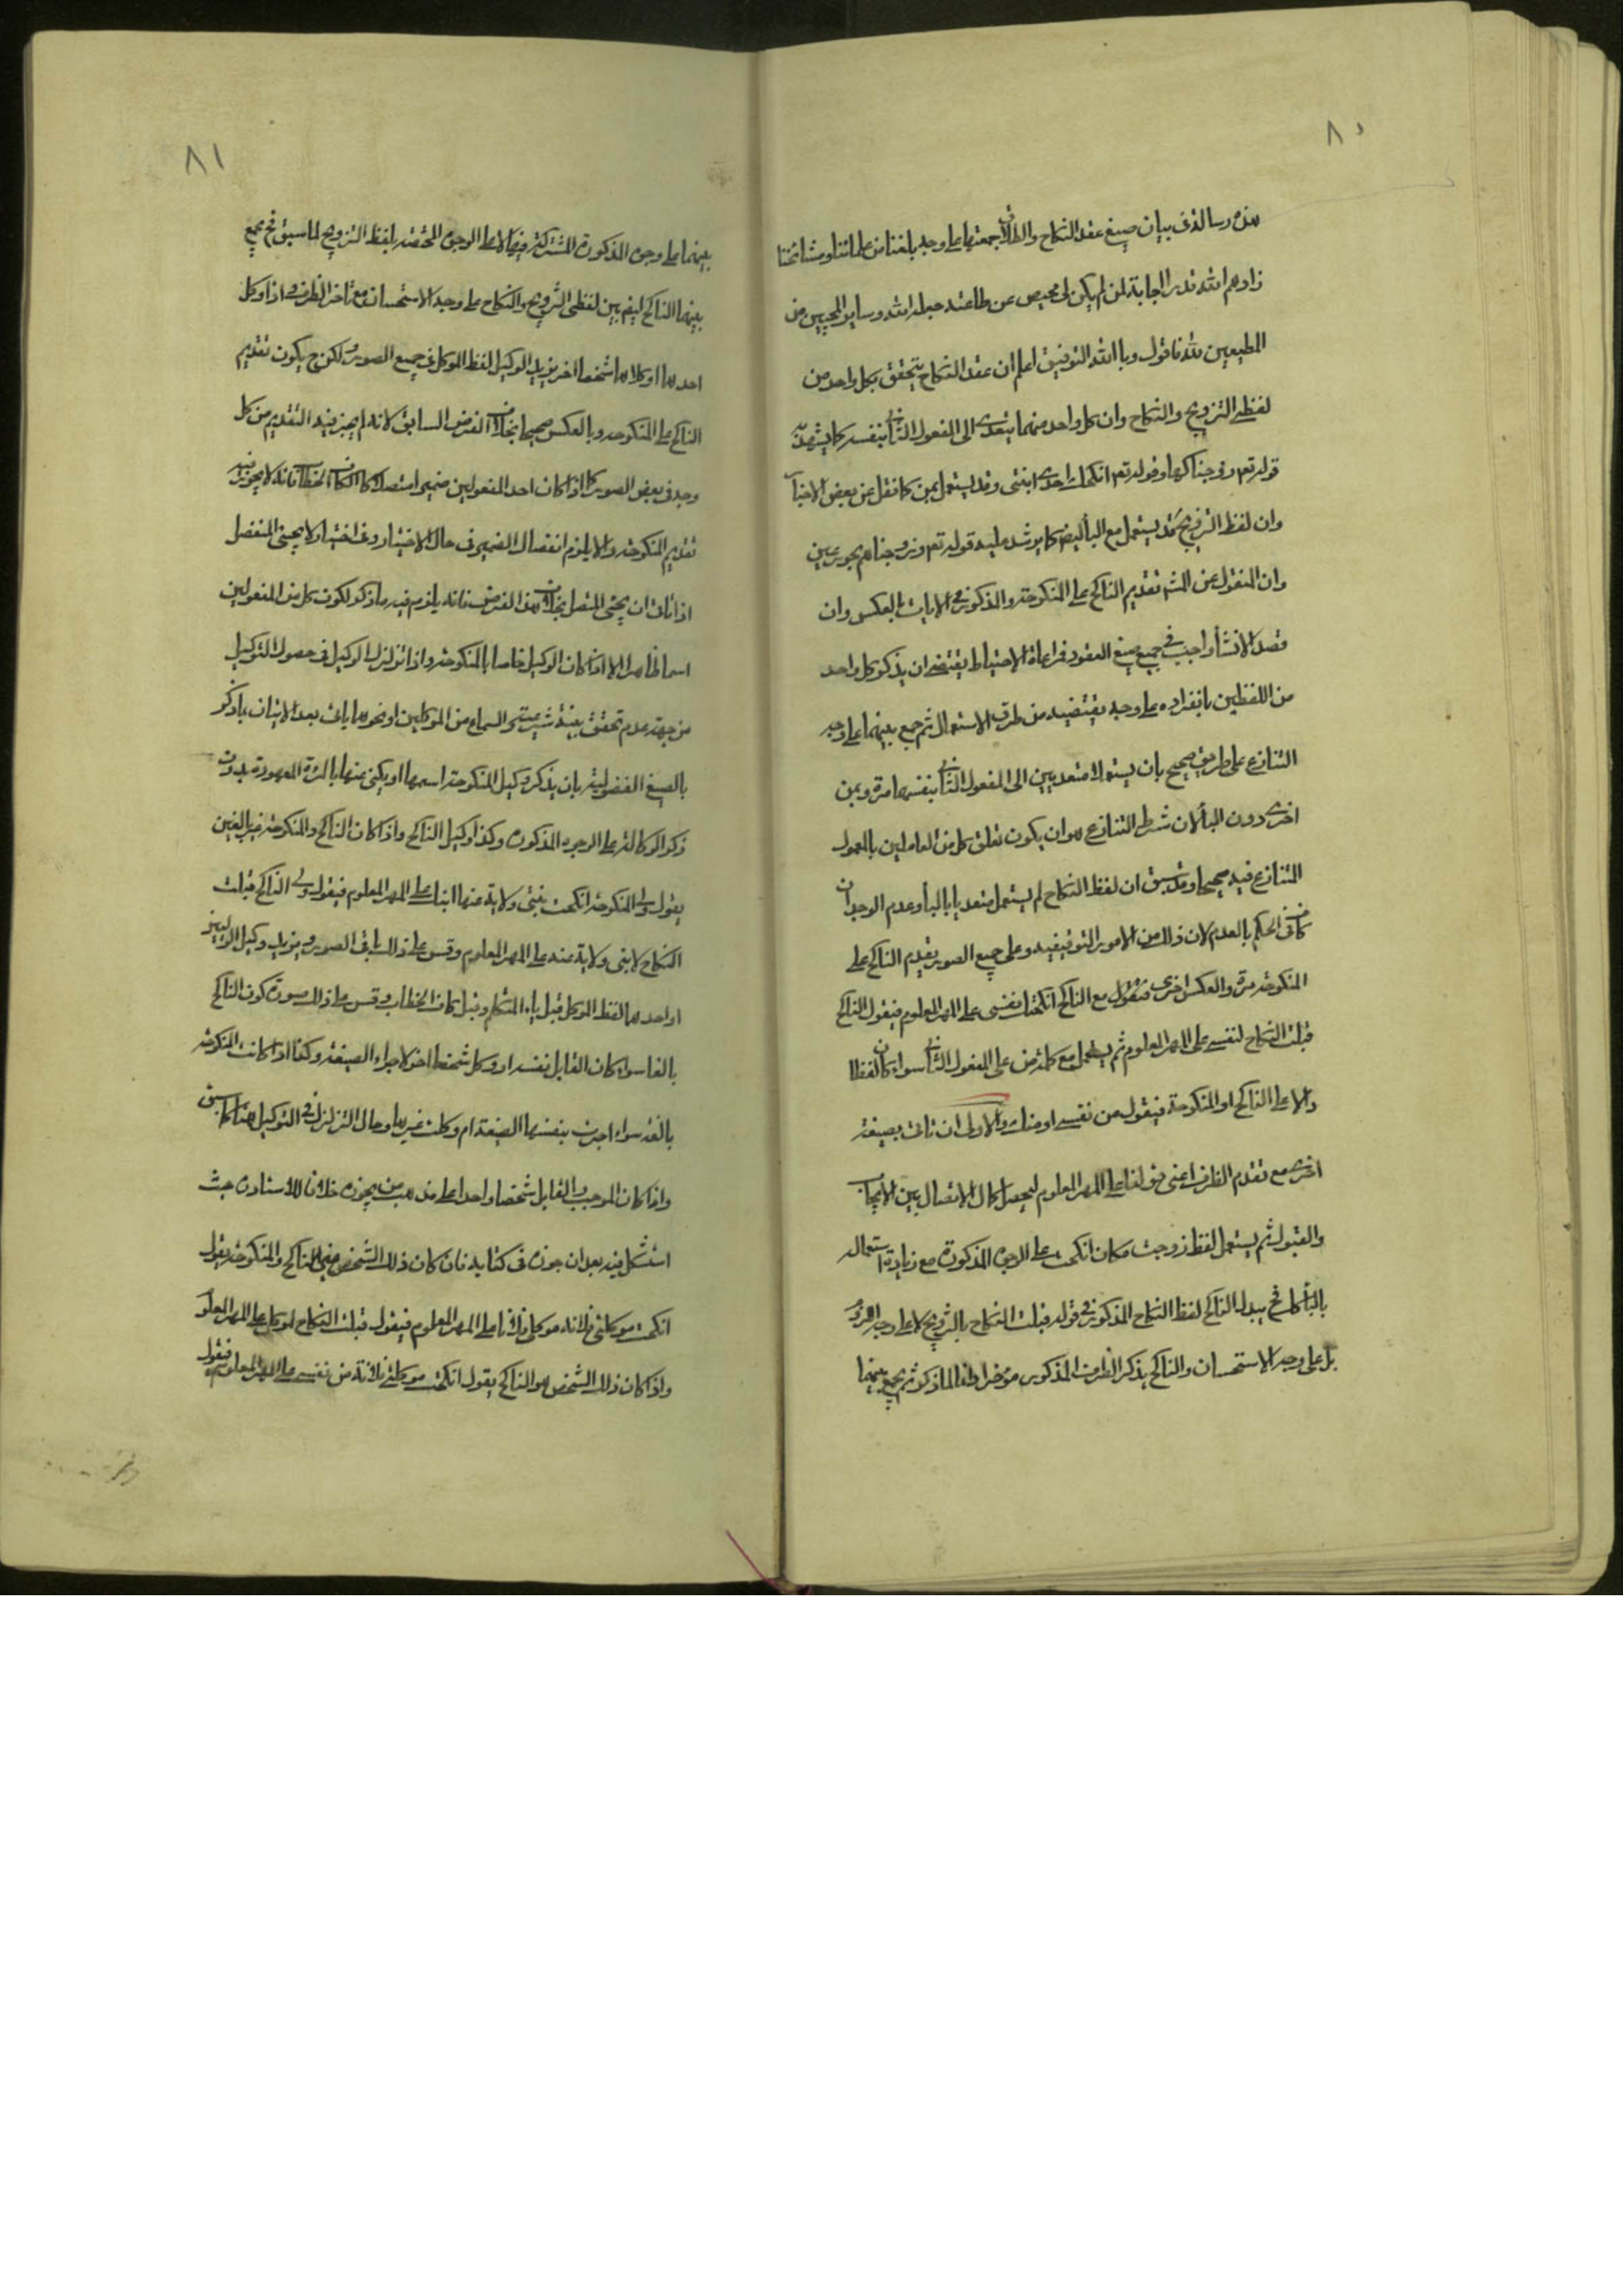 ٨٠
هذه رسالة في بيان صيغ عقد النكاح والطلاق جمعتها على وجه بلغنا من علمائنا ومشائخنا
زادهم الله قدرا اجابة لمن لم يكن لي محيص عن طاعته جعله الله وساير المحبين من
المطيعين لله فاقول وبا الله التوفيق اعلم ان عقد النكاح يتحقق بكل واحد من
لفظي التزويج والنكاح وان كل واحد منهما يتعدى الى المفعول الثاني بنفسه كما يشهد به
قوله تعم زوجناكها وقوله تعم انكحك احدى ابنتي وقد يستعمل بمن كما نقل عن بعض الاخبار
وان لفظ التزويج قد يستعمل مع البأ ايضا كما يرشد اليه قوله تعم وزوجناهم بحور عين
وان المنقول عن تقديم الناكح على المنكوحة والمذكور في الايات بالعكس وان
قصد الانشأ واجب في جميع صيغ العقود فمراعاة الاحتياط يقتضي ان يذكر كل واحد
من اللفظين بانفراده على وجه يقتضيه من طرق الاستعمال ثم جمع بينهما على وجه
التنازع على طريق صحيح بان يستعملا متعديين الى المفعول الثاني بنفسهما مرة وبمن
اخرى دون البأ لان شرط التنازع هو ان يكون تعلق كل من العاملين بالمعمول
المتنازع فيه صحيحا وقد سبق ان لفظ النكاح لم يستعمل متعديا بالبأ وعدم الوجدان
كاف في الحكم بالعدم لان ذلك من الامور التوقيفيه وعلى جميع الصور يقدم الناكح على
المنكوحة مرة والعكس اخرى فتقول مع الناكح انكحتك نفسي على المهر المعلوم فيقول الناكح
قبلت النكاح لنفسي على المهر المعلوم ثم يستعمل مع كلمة من على المفعول الثاني سواء كان لفظا
دالا على الناكح او المنكوحة فيقول من نفسي او منك والاولى ان تاتي بصيغة
اخرى مع تقدم الظرف اعني قولنا على المهر المعلوم ليحصل كمال الاتصال بين الايجاب
والقبول ثم يستعمل لفظ زوجت مكان انكحت على الوجوه المذكورة مع زيادة استعمال
بالبأ كما يبدل الناكح لفظ النكاح المذكور في قوله قبلت النكاح بالتزويج لا على وجه اللزوم
بل على وجه الاستحسان والناكح يذكر الظرف المذكور مؤخرا دائما لما ذكر ثم يجمع بينهما
٨١
بينهما على وجوه المذكورة المشتركة فيها لا على الوجوه المختصه بلفظ التزويج لما سبق فح يجمع
بينهما الناكح ايضا بين لفظي التزويج والنكاح على وجه الاستحسان مع تاخر الظرف واذا وكل
احدهما او كلاهما شخصا اخر يزيد الوكيل لفظ الموكل في جميع الصور ولكن ح يكون تقديم
الناكح على المنكوحه وبالعكس صحيحا بخلاف الفرض السابق لانه لم يجز فيه التقديم من كل
وجه في بعض الصور كما اذا كان احد المفعولين ضميرا متصلا كالكاف الخطاب فانه لا يجوز فيه
تقديم المنكوحة والا يلزم انفصال الضمير في حال الاختيار وفي اختيار لا يجيئ المنفصل
اذا تات ان يجئ المتصل بخلاف هذا الفرض فانه يلزم فيه ما ذكر لكون كل من المفعولين
اسما ظاهرا الا اذا كان الوكيل خاصا بالمنكوحة واذا تزلزل الوكيل في حصول التوكيل
من جهة عدم تحقق بينة شرعية والسماع من الموكلين او نحوهما ياتى بعد الاتيان بما ذكر
بالصيغ الفضولية بان يذكر وكيل المنكوحة اسمها او يكنى عنها بالمرة المعهودة بدون
ذكر الوكالة على الوجوه المذكوره وكذا وكيل الناكح واذا كان الناكح والمنكوحة غير بالغين
يقول ولي المنكوحة انكحت بنتي ولاية عنها ابنك على المهر المعلوم فيقول ولي الناكح قبلت
النكاح لابني ولاية عنه على المهر المعلوم وقس على ذلك باقي الصور ويزيد وكيل الوليين
او احدهما لفظ الموكل قبل ياء المتكلم وقبل كاف الخطاب وقس على ذلك صورة كون الناكح
بالغا سواء كان القابل نفسه او وكل شخصا اخر لاجراء الصيغة وكذا اذا كانت المنكوحة
بالغه سواء اجرت بنفسها الصيغة ام وكلت غيرها وحال التزلزل في التوكيل هنا كما سبق
واذا كان الموجب والقابل شخصا واحدا على مذهب من يجوزه خلافا للاستاد حيث
استشكل فيه بعد ان جوزه في كتابه فان كان ذلك الشخص غير الناكح والمنكوحة يقول
انكحت موكلتي فلانه موكلي فلانا على المهر المعلوم فيقول قبلت النكاح لموكلي على المهر المعلوم
واذا كان ذلك الشخص هو الناكح يقول انكحت موكلتي فلانة من نفسي على المهر المعلوم فيقول